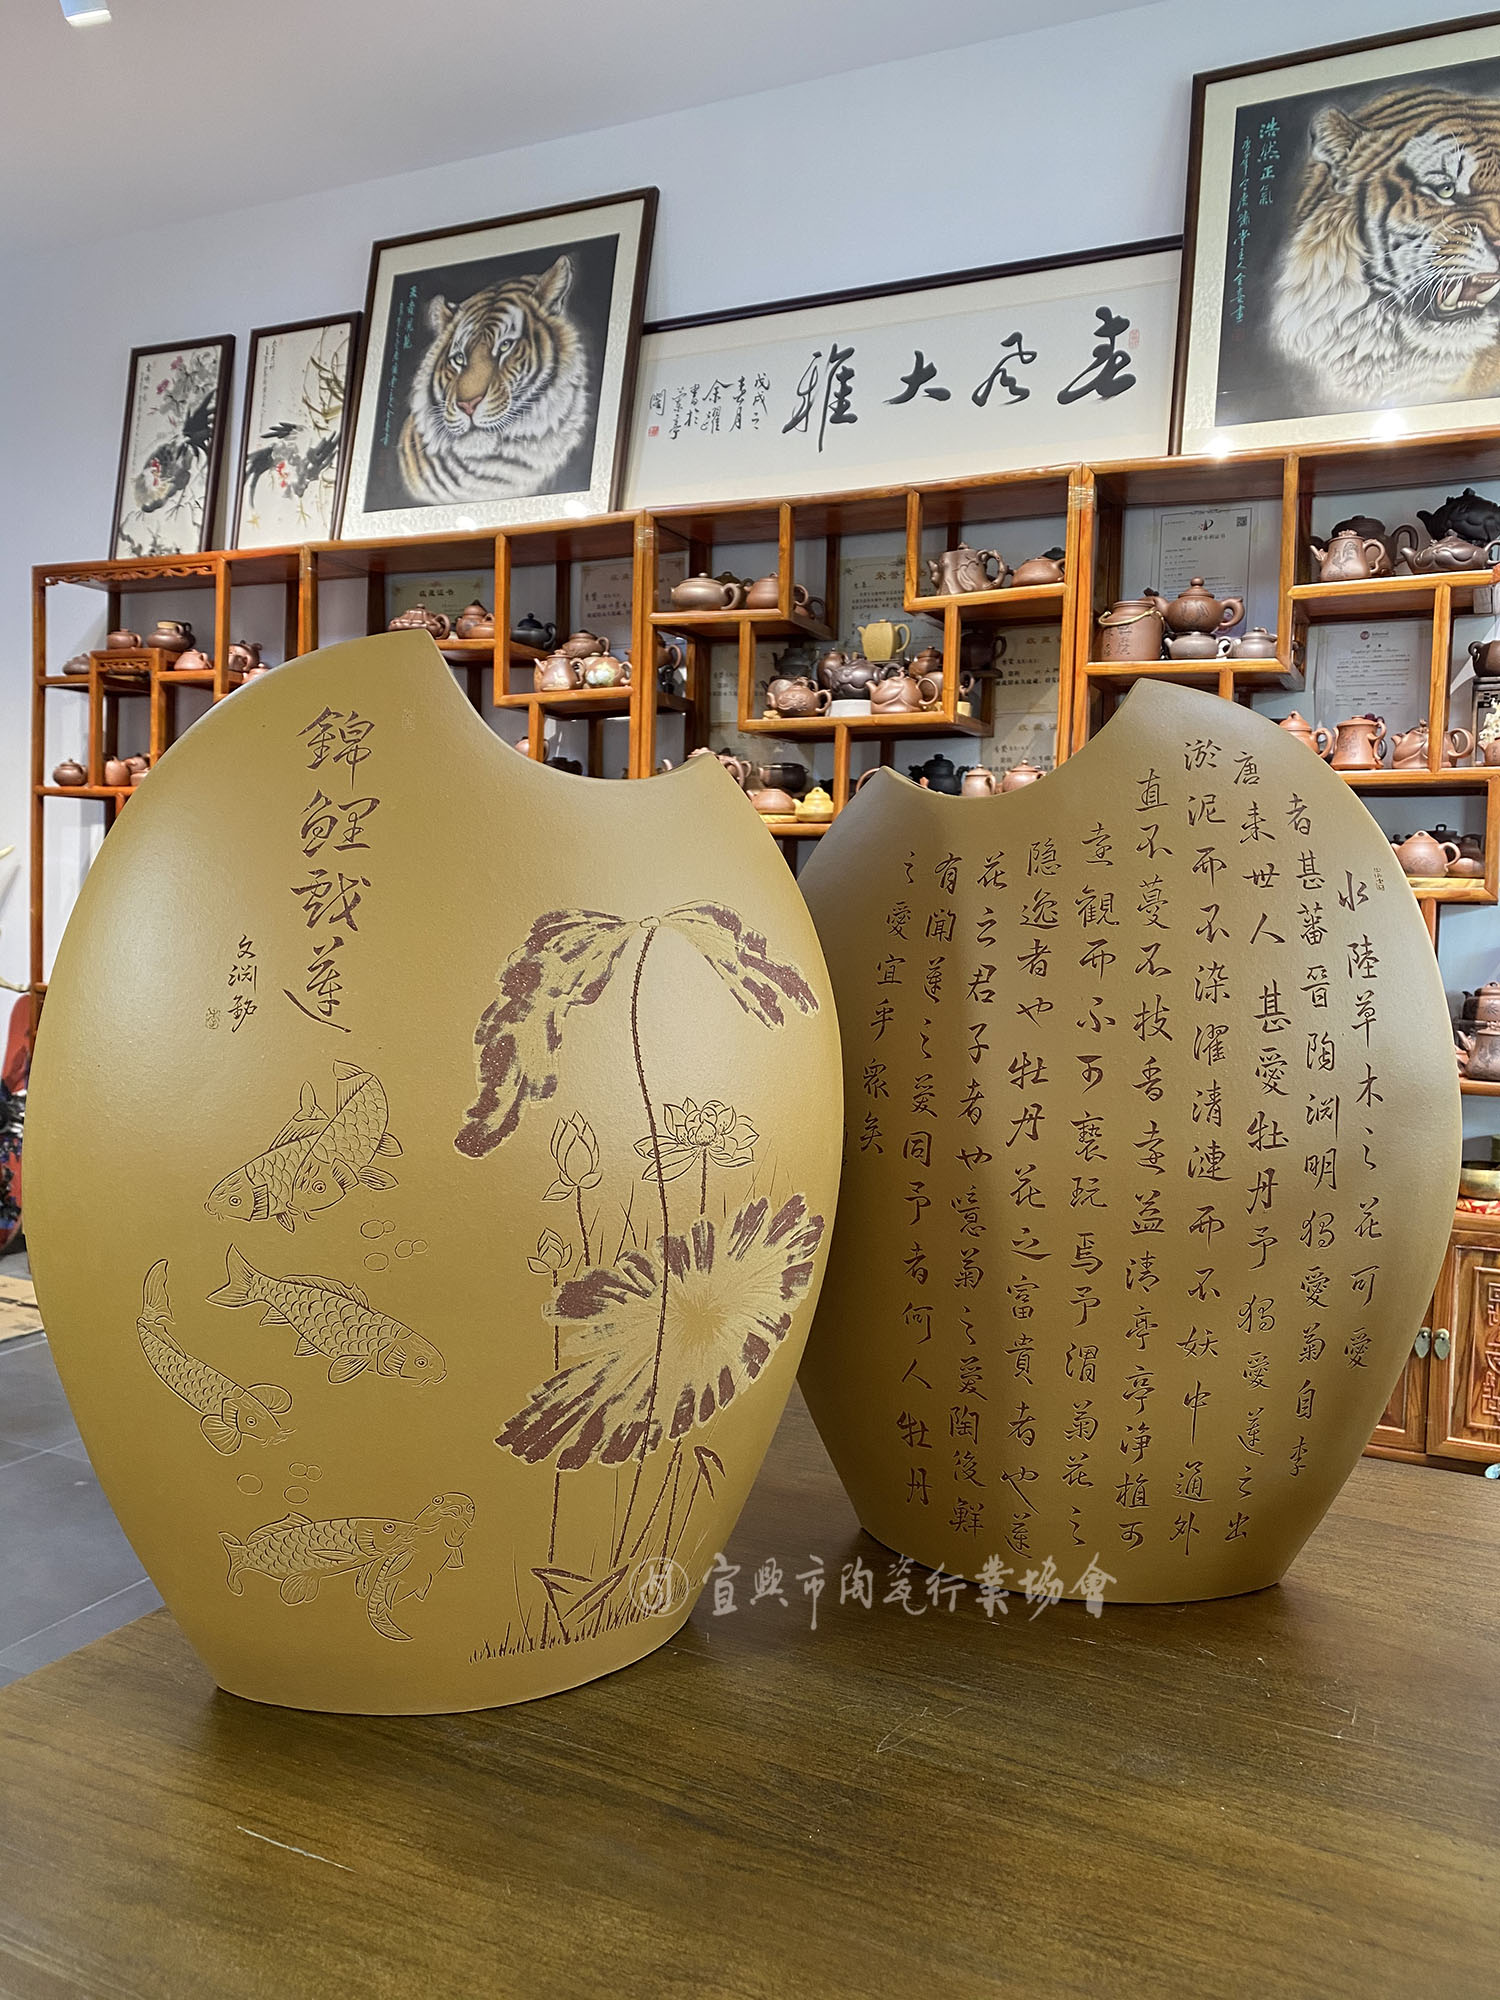 浩然正氣
春风大雅
戊戌之
春月
余躍
書於
錦鯉戲蓮
文渊銘
水陸草木之花可愛
者甚蕃晉陶渊明獨愛菊自李
唐来世人甚愛牡丹予獨愛蓮之出
淤泥而不染濯清漣而不妖中通外
直不蔓不枝香遠益清亭亭淨植可
遠觀而不可褻玩焉予謂菊花之
隐逸者也牡丹花之富貴者也蓮
花之君子者也噫菊之愛陶後鮮
有聞蓮之愛同予者何人牡丹
之愛宜乎眾矣
收藏证书
外观设计专利证书
宜興市陶瓷行業協會